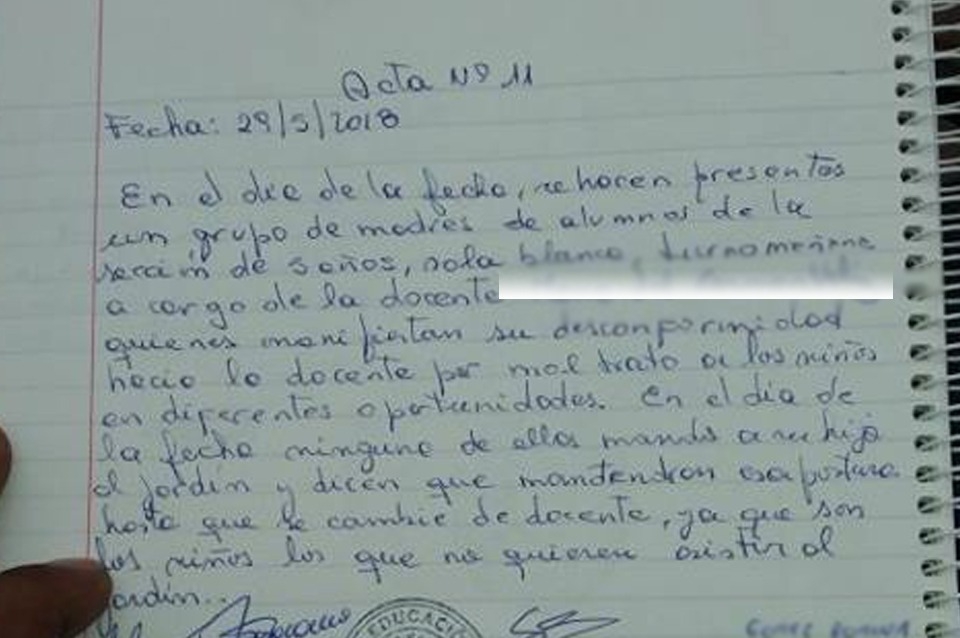 Acta Nº 11
Fecha: 29/5/2018
En el día de la fecha, se hacen presentes
un grupo de madres de alumnos de la
sección de 5 años, sala blanca, turno mañana
a cargo de la docente
quienes manifiestan su desconformidad
hacia la docente por mal trato a los niños
en diferentes oportunidades. En el día de
la fecha ninguna de ellas mandó a su hijo
al jardín y dicen que mantendrán esa postura
hasta que se cambie de docente, ya que son
los niños los que no quieren asistir al
jardín...
EDUCACIÓ